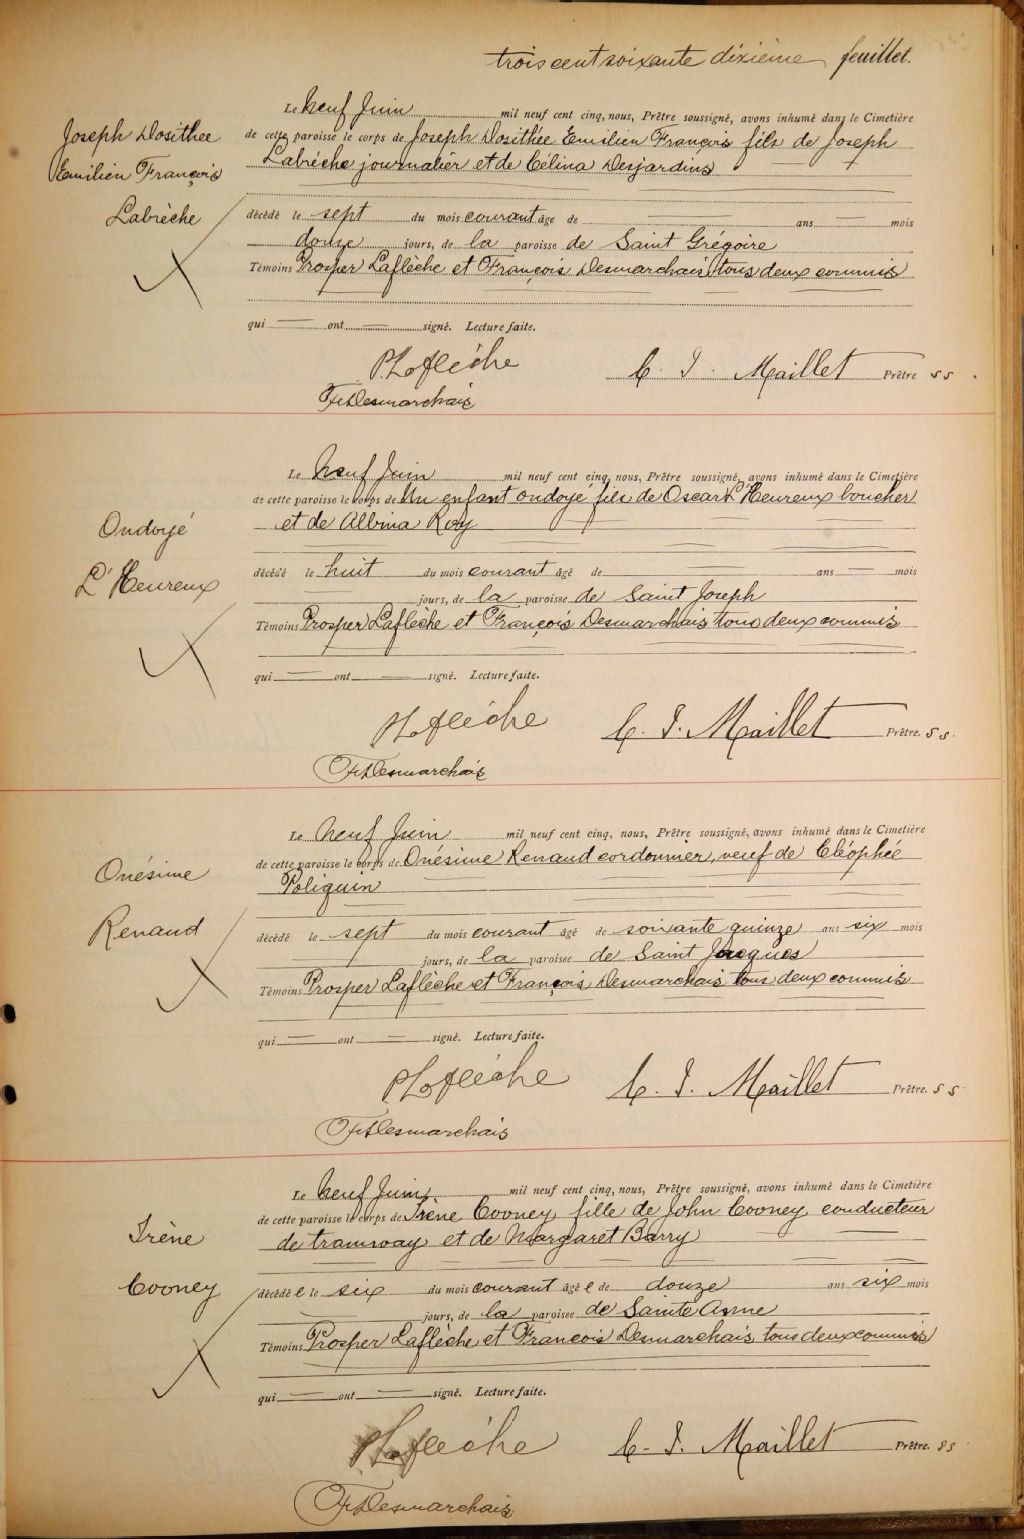 trois cent soixante dixième feuillet.
Joseph Dosithée
Emilien François
Labrèche
Le Neuf Juin mil neuf cent cinq, nous, Prêtre soussigné, avons inhumé dans le Cimetière
de cette paroisse le corps de Joseph Dosithée Emilien François fils de Joseph
Labrèche journalier et de Célina Desjardins
décédé le sept du mois courant âge de ans mois
douze jours, de la paroisse de Saint Grégoire
Témoins Prosper Laflèche et François Desmarchais tous deux commis
qui ont signé. Lecture faite.
P. Laflèche
C. I. Maillet Prêtre SS.
Fr. Desmarchais
Ondoyé
L'Heureux
Le Neuf Juin mil neuf cent cinq, nous, Prêtre soussigné, avons inhumé dans le Cimetière
de cette paroisse le corps de Un enfant ondoyé fils de Oscar L'Heureux boucher
et de Albina Roy
décédé le huit du mois courant âgé de ans mois
jours, de la paroisse de Saint Joseph
Témoins Prosper Laflèche et François Desmarchais tous deux commis
qui ont signé. Lecture faite.
P. Laflèche
C. I. Maillet Prêtre. SS.
Fr. Desmarchais
Onésime
Renaud
Le Neuf Juin mil neuf cent cinq, nous, Prêtre soussigné, avons inhumé dans le Cimetière
de cette paroisse le corps de Onésime Renaud cordonnier, veuf de Cléophée
Poliquin
décédé le sept du mois courant âgé de soixante quinze ans six mois
jours, de la paroisse de Saint Jacques
Témoins Prosper Laflèche et François Desmarchais tous deux commis
qui ont signé. Lecture faite.
P. Laflèche
C. I. Maillet Prêtre. SS.
Fr. Desmarchais
Irène
Cooney
Le Neuf Juin mil neuf cent cinq, nous, Prêtre soussigné, avons inhumé dans le Cimetière
de cette paroisse le corps de Irène Cooney fille de John Cooney conducteur
de tramway et de Margaret Barry
décédée le six du mois courant âgée de douze ans six mois
jours, de la paroisse de Sainte Anne
Témoins Prosper Laflèche et François Desmarchais tous deux commis
qui ont signé. Lecture faite.
P. Laflèche
C. I. Maillet Prêtre. SS
Fr. Desmarchais